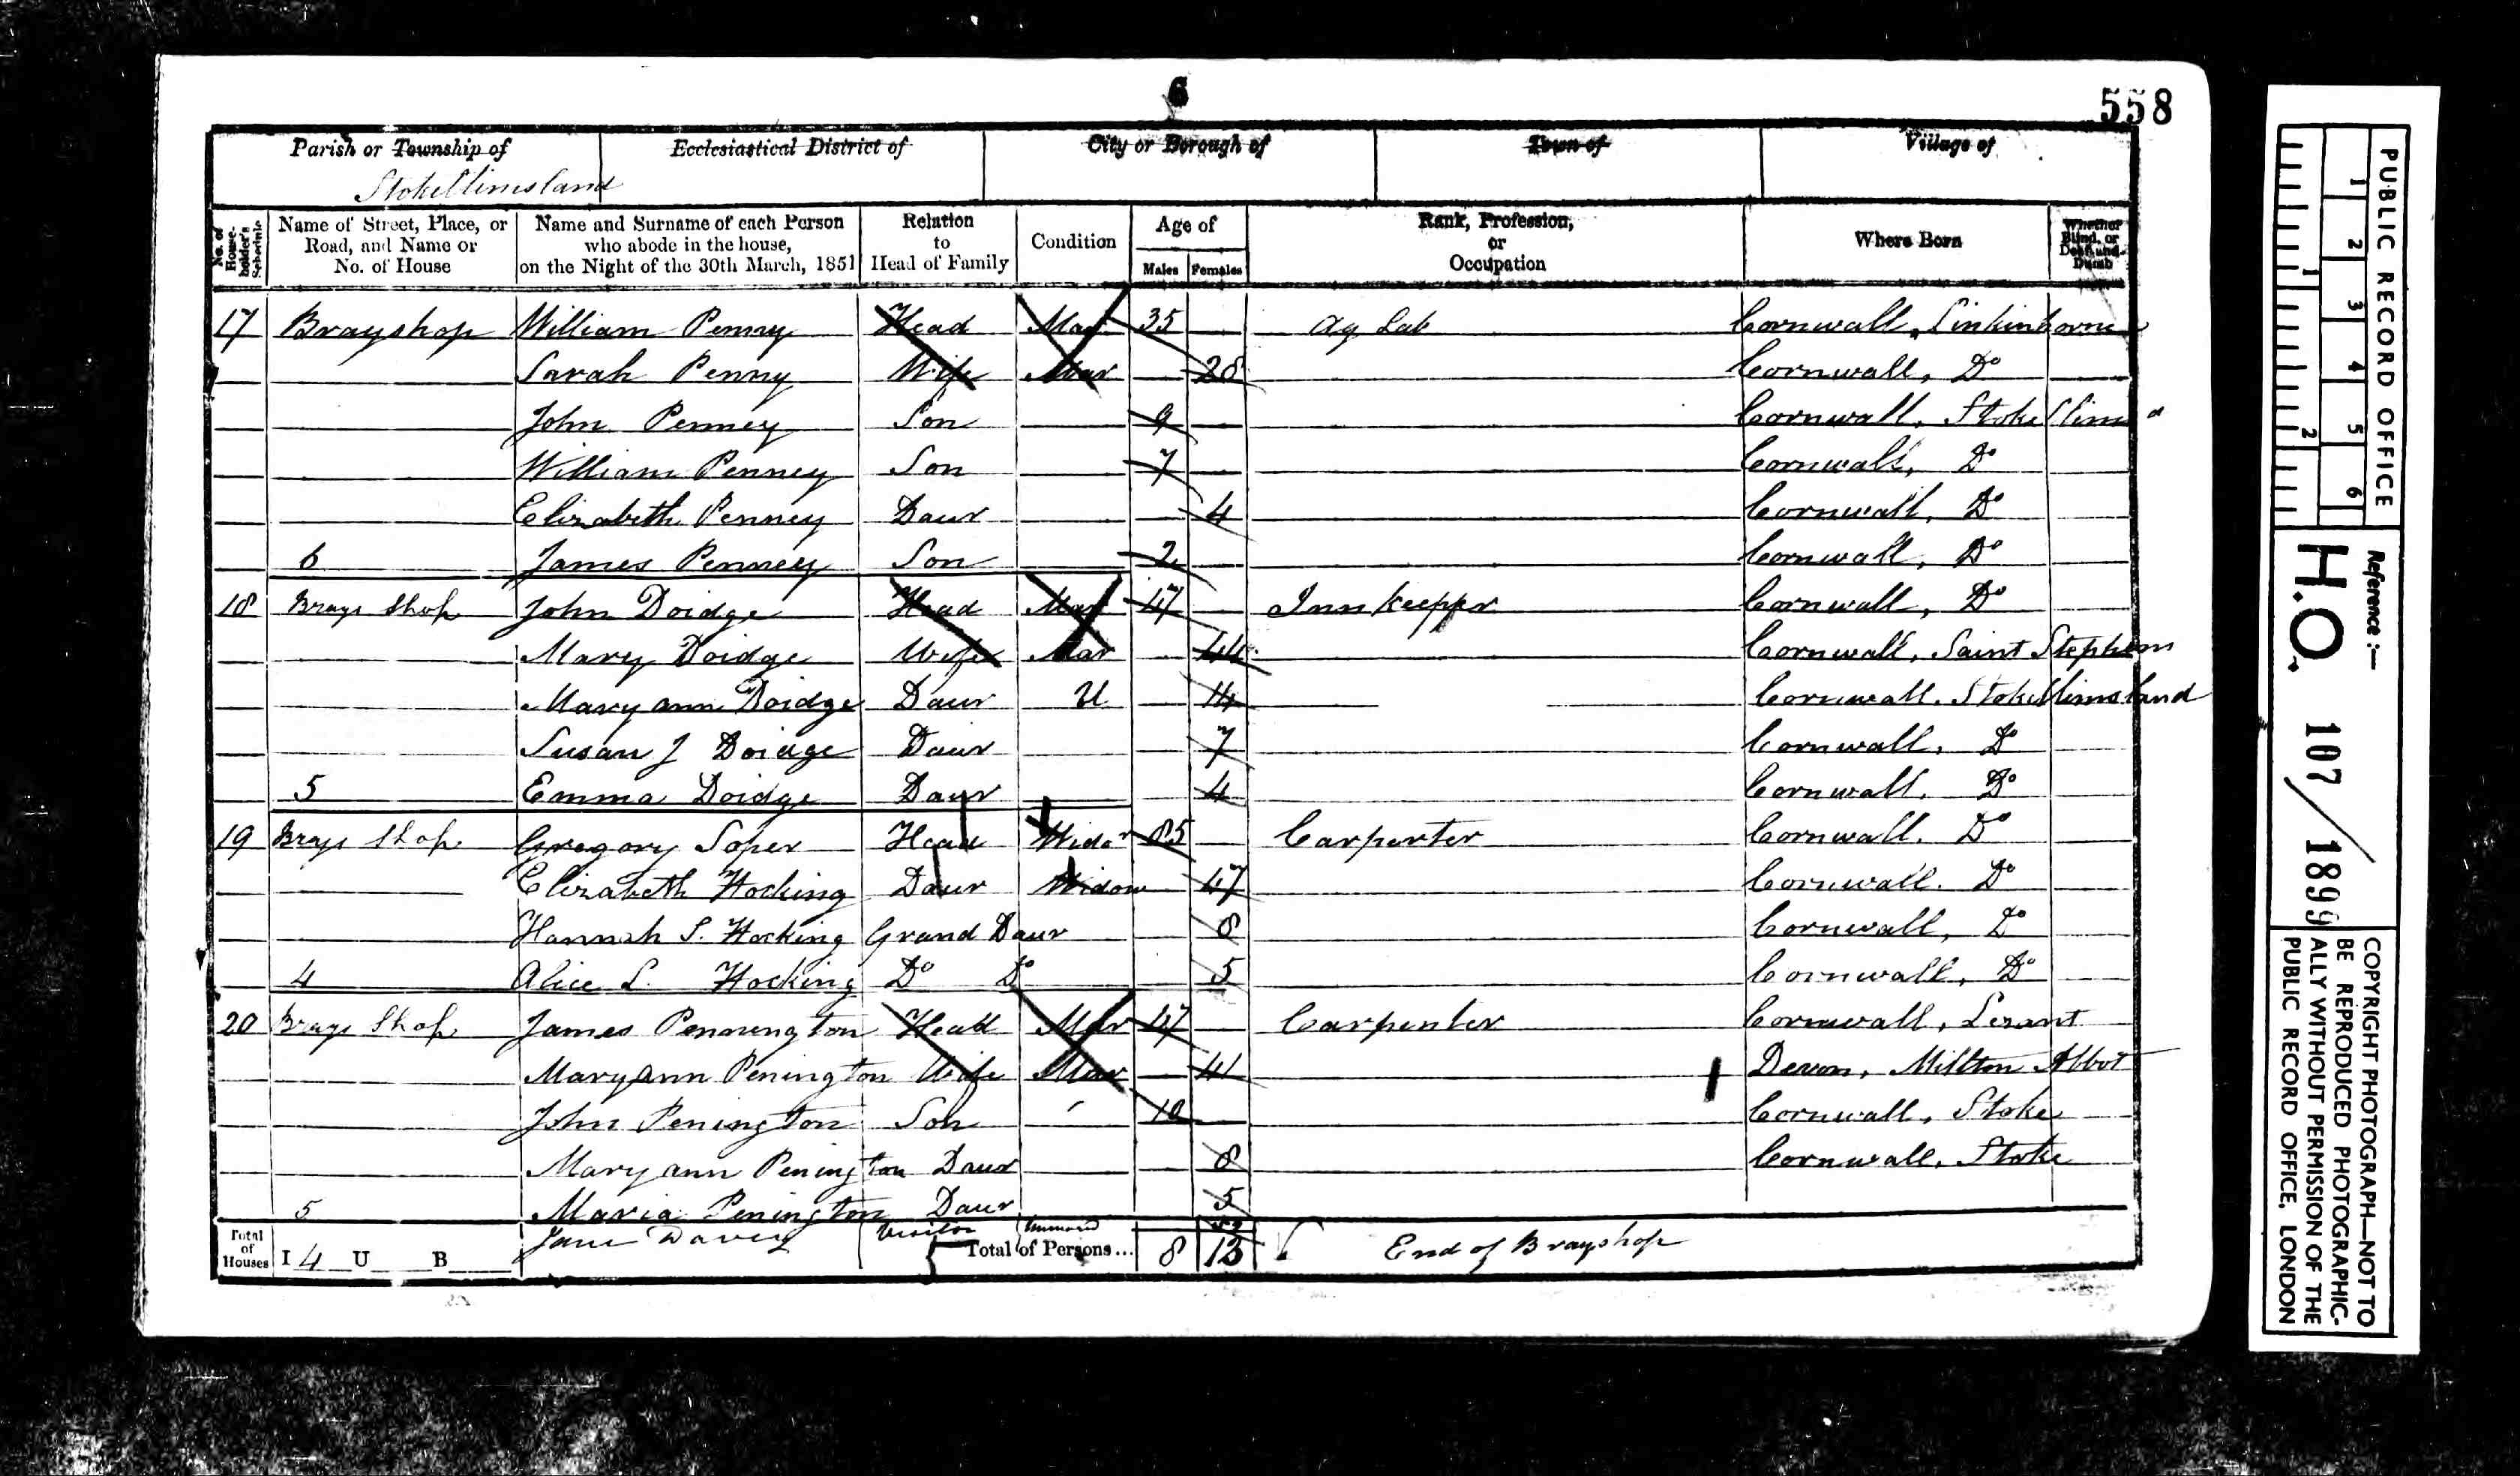 6
558
Parish or Township of Ecclesiastical District of City or Borough of Town of Village of
StokeClimsland
No. of House-holder's Schedule Name of Street, Place, or Road, and Name or No. of House Name and Surname of each Person who abode in the house, on the Night of the 30th March, 1851 Relation to Head of Family Condition Age of Males Females Rank, Profession, or Occupation Where Born Whether Blind, or Deaf-and-Dumb
17 Brayshop William Penny Head Mar 35 Ag Lab Cornwall, Linkinhorne
Sarah Penny Wife Mar 28 Cornwall, Do
John Penney Son 9 Cornwall, Stoke Clims
William Penney Son 7 Cornwall, Do
Elizabeth Penney Daur 4 Cornwall, Do
6 James Penney Son 2 Cornwall, Do
18 Brays Shop John Doidge Head Mar 47 Inn Keepper Cornwall, Do
Mary Doidge Wife Mar 44 Cornwall, Saint Stephens
Mary ann Doidge Daur U 14 Cornwall. StokeClimsland
Susan J Doidge Daur 7 Cornwall, Do
5 Emma Doidge Daur 4 Cornwall. Do
19 Brays Shop Gregory Soper Head Widor 85 Carpenter Cornwall. Do
Elizabeth Hocking Daur Widow 47 Cornwall. Do
Hannah S. Hocking Grand Daur 8 Cornwall, Do
4 Alice S. Hocking Do Do 5 Cornwall, Do
20 Brays Shop James Pennington Head Mar 47 Carpenter Cornwall, Lezant
Maryann Penington Wife Mar 41 Devon, Millton Abbot
John Penington Son 10 Cornwall, Stoke
Mary ann Penington Daur 8 Cornwall. Stoke
5 Maria Penington Daur 5
Jane Davey Visitor
Total of Houses I 4 U B Total of Persons... 8 13 End of Brayshop
PUBLIC RECORD OFFICE
1 2 3 4 5 6
1 2
Reference :—
H.O. 107/1899
COPYRIGHT PHOTOGRAPH—NOT TO
BE REPRODUCED PHOTOGRAPHIC-
ALLY WITHOUT PERMISSION OF THE
PUBLIC RECORD OFFICE, LONDON